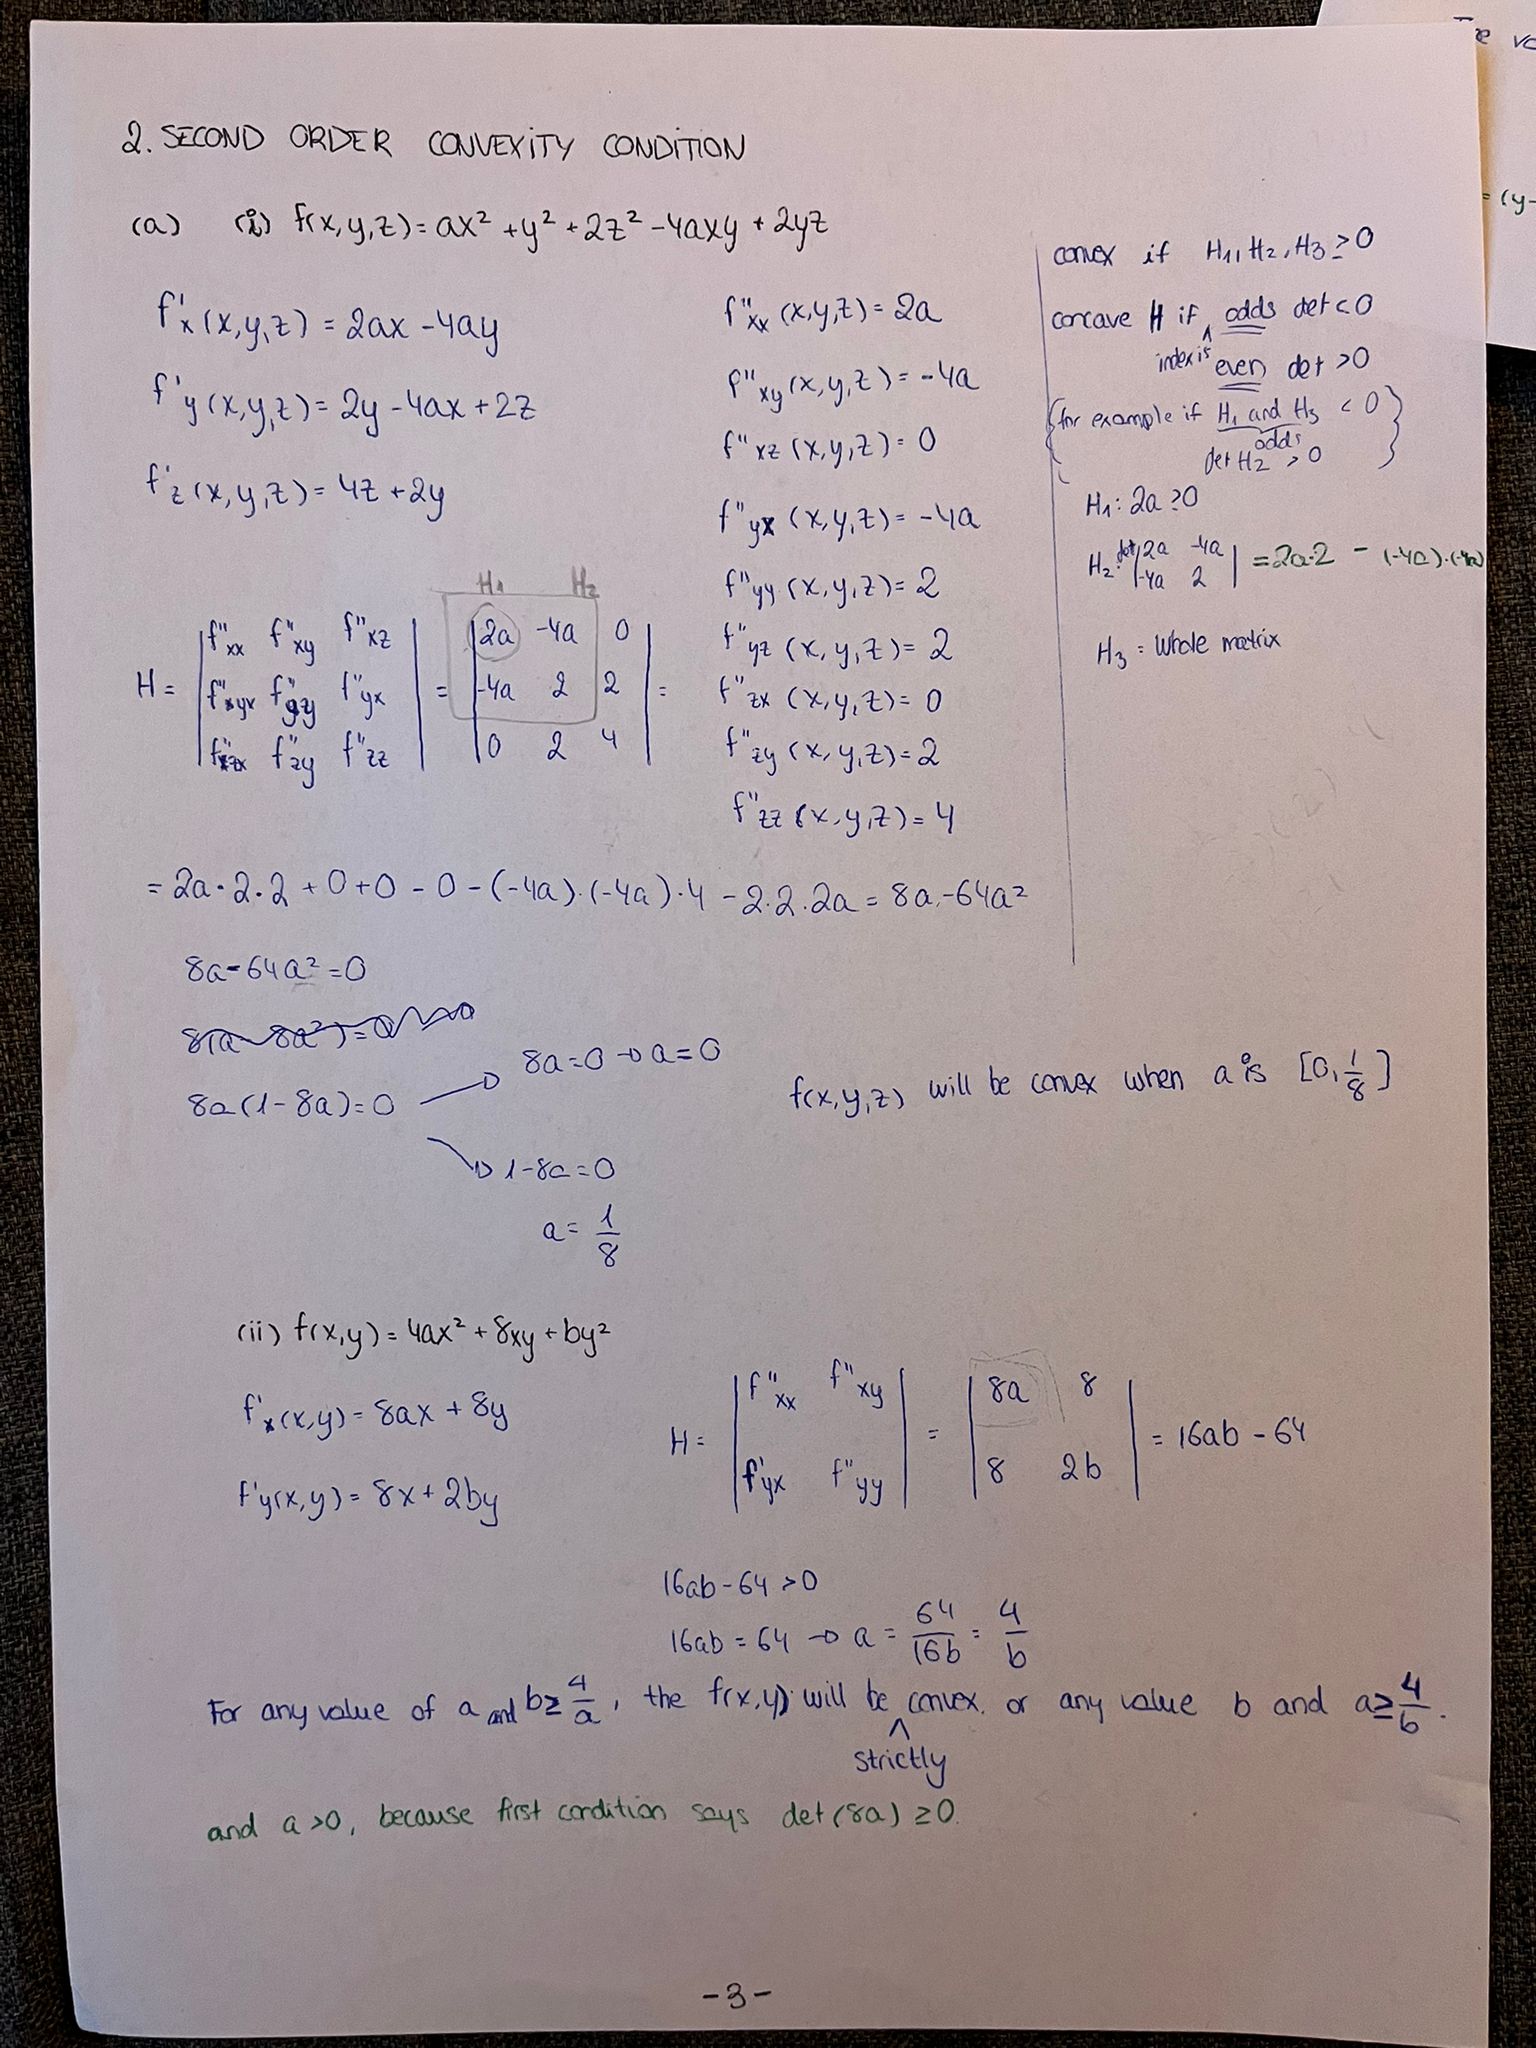 2. SECOND ORDER CONVEXITY CONDITION
(a) (i) f(x,y,z) = ax² + y² + 2z² - 4axy + 2yz
f'x (x,y,z) = 2ax - 4ay
f'y (x,y,z) = 2y - 4ax + 2z
f'z (x,y,z) = 4z + 2y
f''xx (x,y,z) = 2a
f''xy (x,y,z) = -4a
f''xz (x,y,z) = 0
f''yx (x,y,z) = -4a
f''yy (x,y,z) = 2
f''yz (x,y,z) = 2
f''zx (x,y,z) = 0
f''zy (x,y,z) = 2
f''zz (x,y,z) = 4
convex if H1, H2, H3 ≥ 0
concave H if odds det < 0
index is
even det > 0
(for example if H1 and H3 < 0)
odds
det H2 > 0
H1: 2a ≥ 0
H2: det |2a -4a| = 2a·2 - (-4a)·(-4a)
|-4a 2|
H3 = Whole matrix
H1 H2
|f''xx f''xy f''xz| |2a -4a 0|
H = |f''yx f''yy f''yx| = |-4a 2 2| =
|f''zx f''zy f''zz| |0 2 4|
= 2a·2·2 + 0 + 0 - 0 - (-4a)·(-4a)·4 - 2·2·2a = 8a - 64a²
8a - 64a² = 0
8(a - 8a²) = 0
8a(1 - 8a) = 0
8a = 0 → a = 0
1 - 8a = 0
a = 1/8
f(x,y,z) will be convex when a is [0, 1/8]
(ii) f(x,y) = 4ax² + 8xy + by²
f'x(x,y) = 8ax + 8y
f'y(x,y) = 8x + 2by
|f''xx f''xy| |8a 8|
H = | | = | | = 16ab - 64
|f'yx f''yy| |8 2b|
16ab - 64 > 0
16ab = 64 → a = 64/16b = 4/b
For any value of a and b ≥ 4/a, the f(x,y) will be convex. or any value b and a ≥ 4/b.
^
strictly
and a > 0, because first condition says det (8a) ≥ 0.
-3-
= (y-